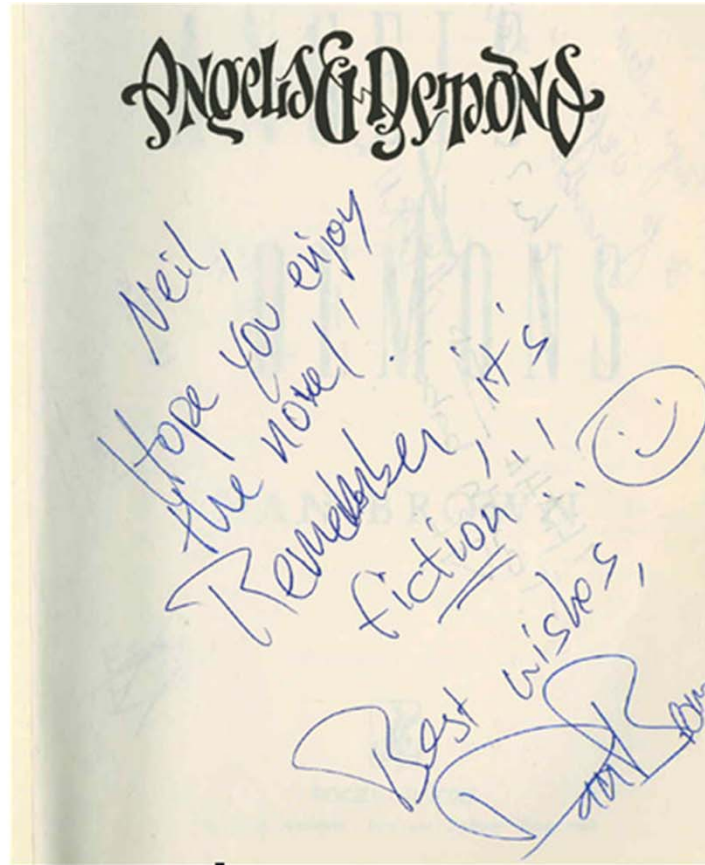 Angels & Demons
Neil,
Hope you enjoy
the novel!
Remember, it's
fiction!!!
Best wishes,
Dan Brown